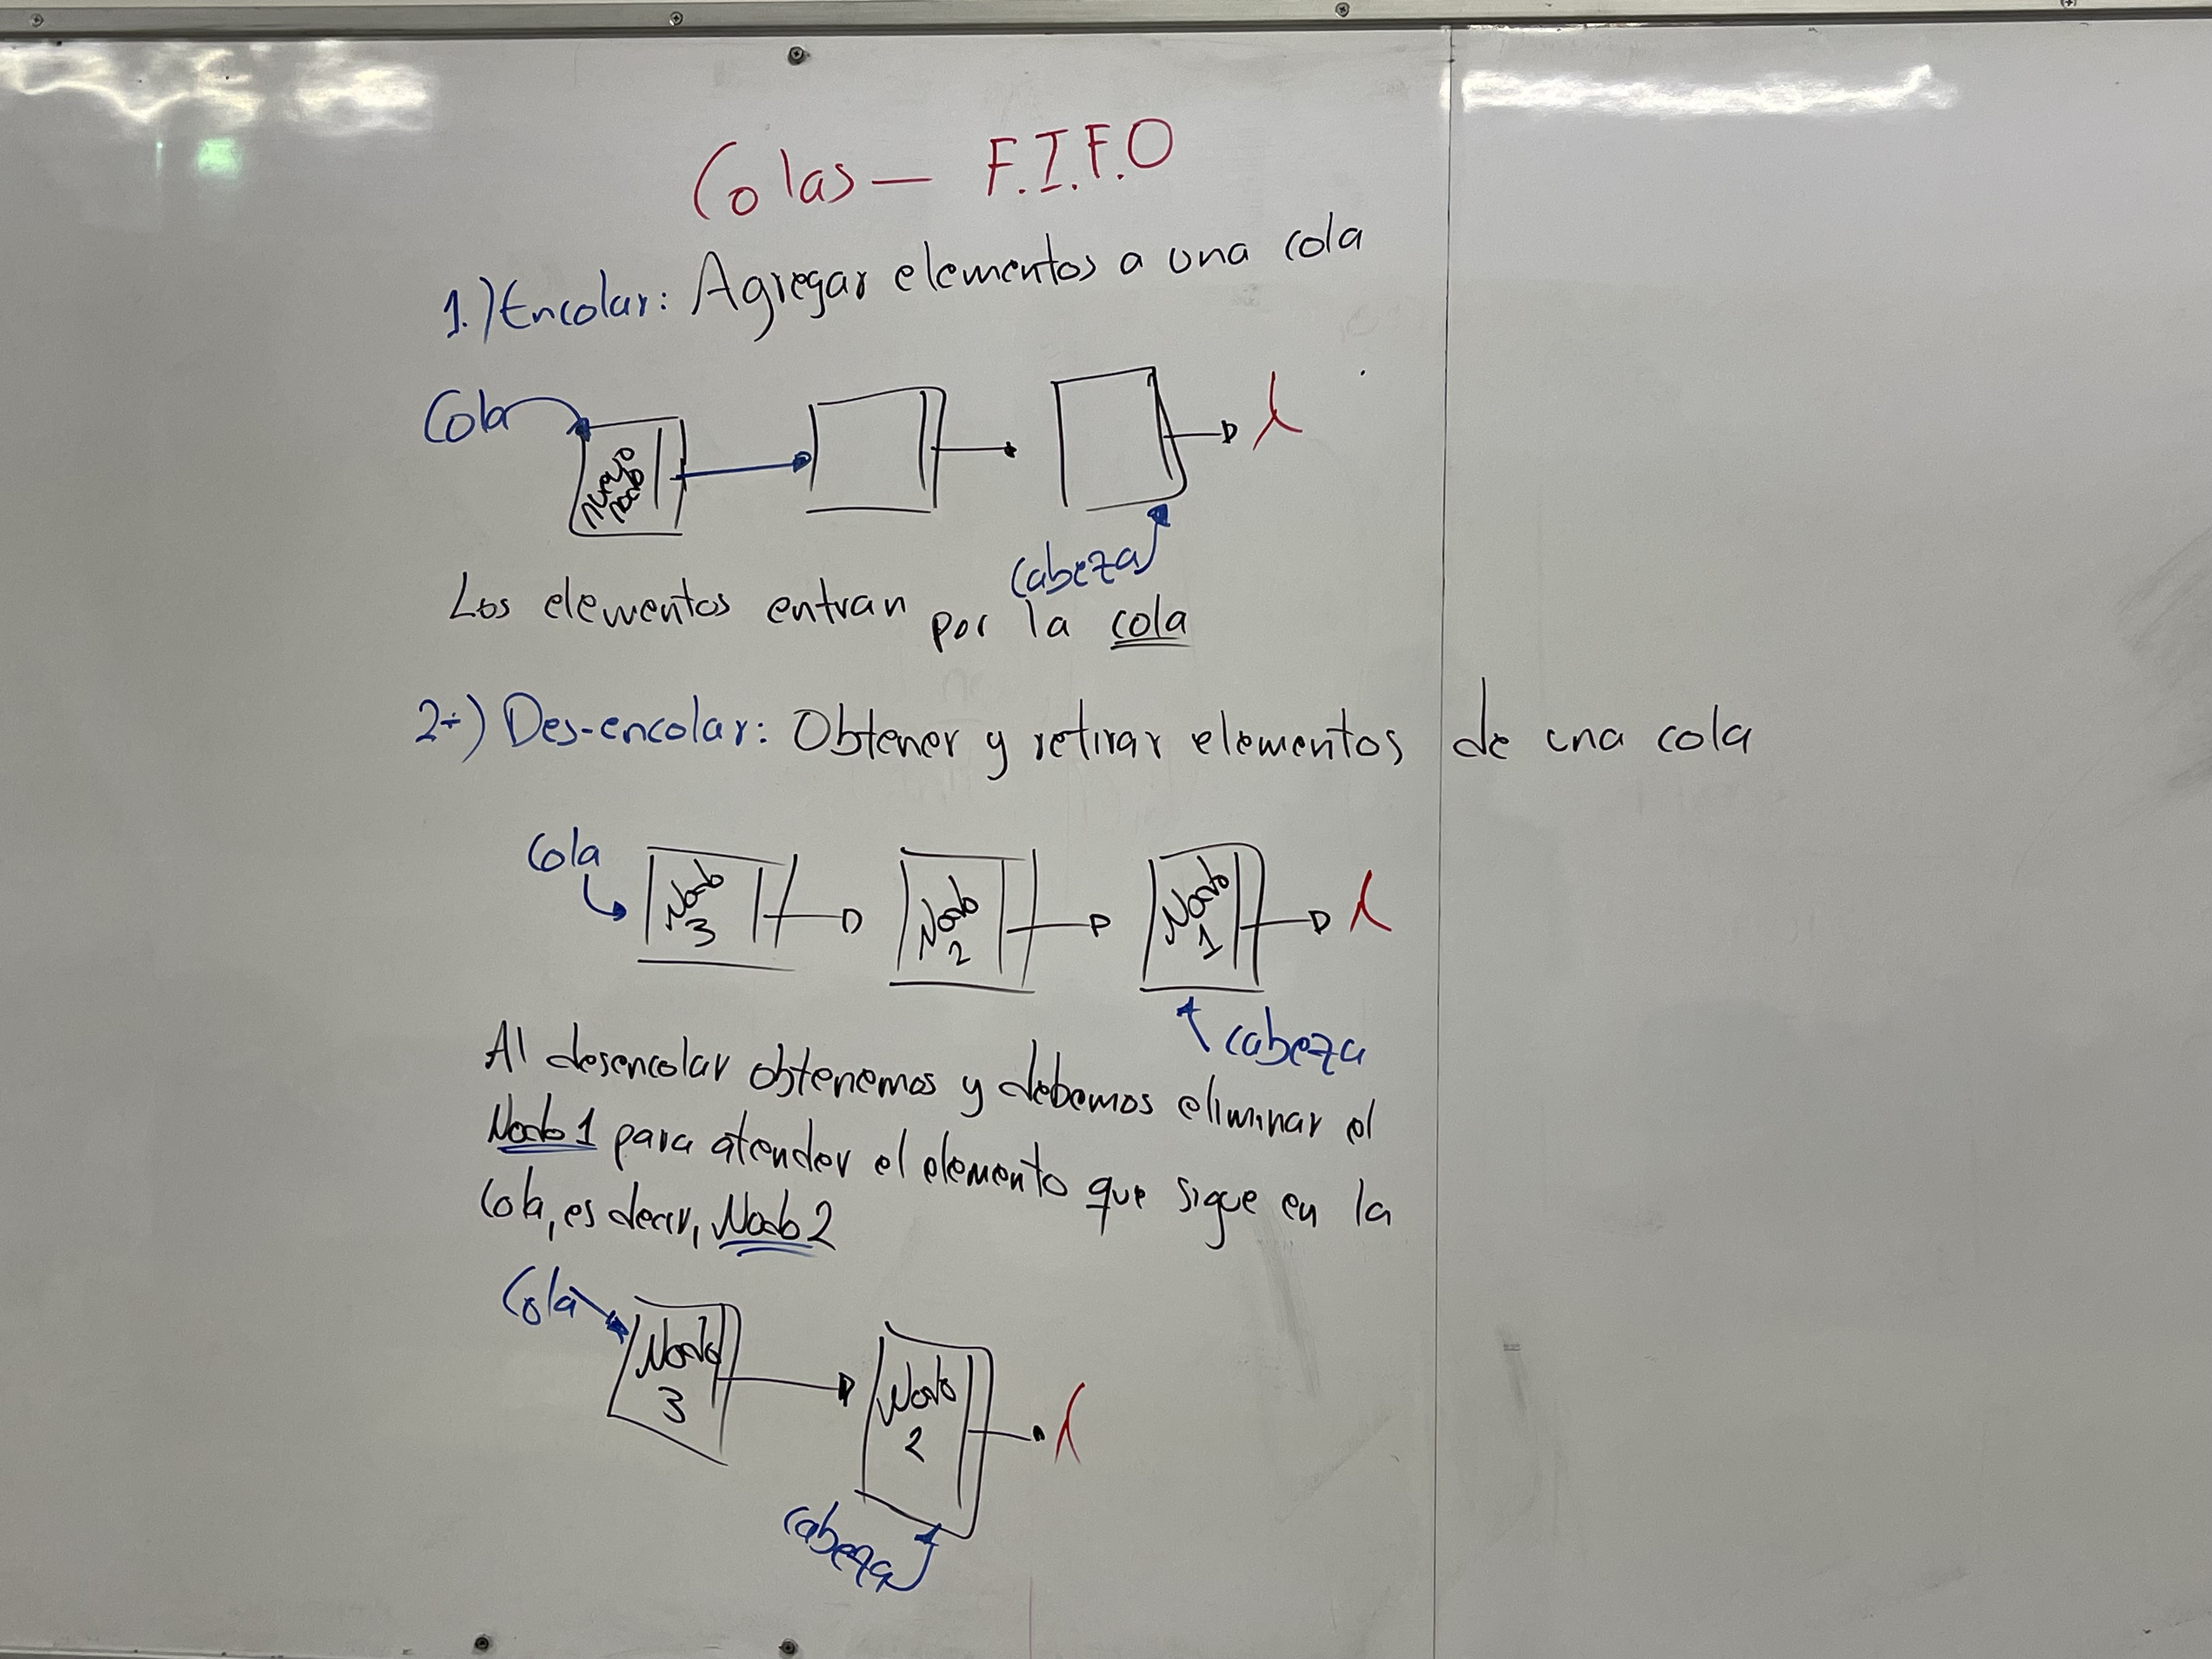 Colas — F.I.F.O
1.) Encolar: Agregar elementos a una cola
Cola
nuevo
nodo
λ
cabeza
Los elementos entran por la cola
2.) Des-encolar: Obtener y retirar elementos de una cola
Cola
Nodo
3
Nodo
2
Nodo
1
λ
cabeza
Al desencolar obtenemos y debemos eliminar el
Nodo 1 para atender el elemento que sigue en la
Cola, es decir, Nodo 2
Cola
Nodo
3
Nodo
2
λ
cabeza